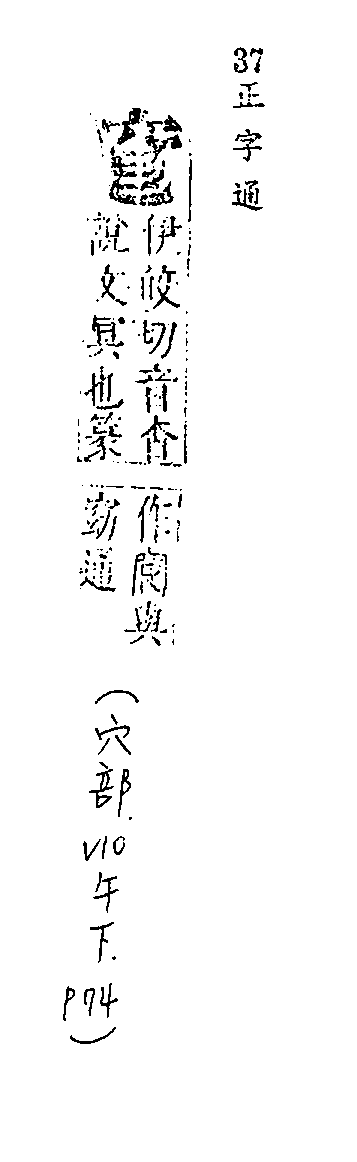 37 正字通
伊皎切音杳
說文冥也篆
作與
窈通
(穴部. V10 午下. P74)